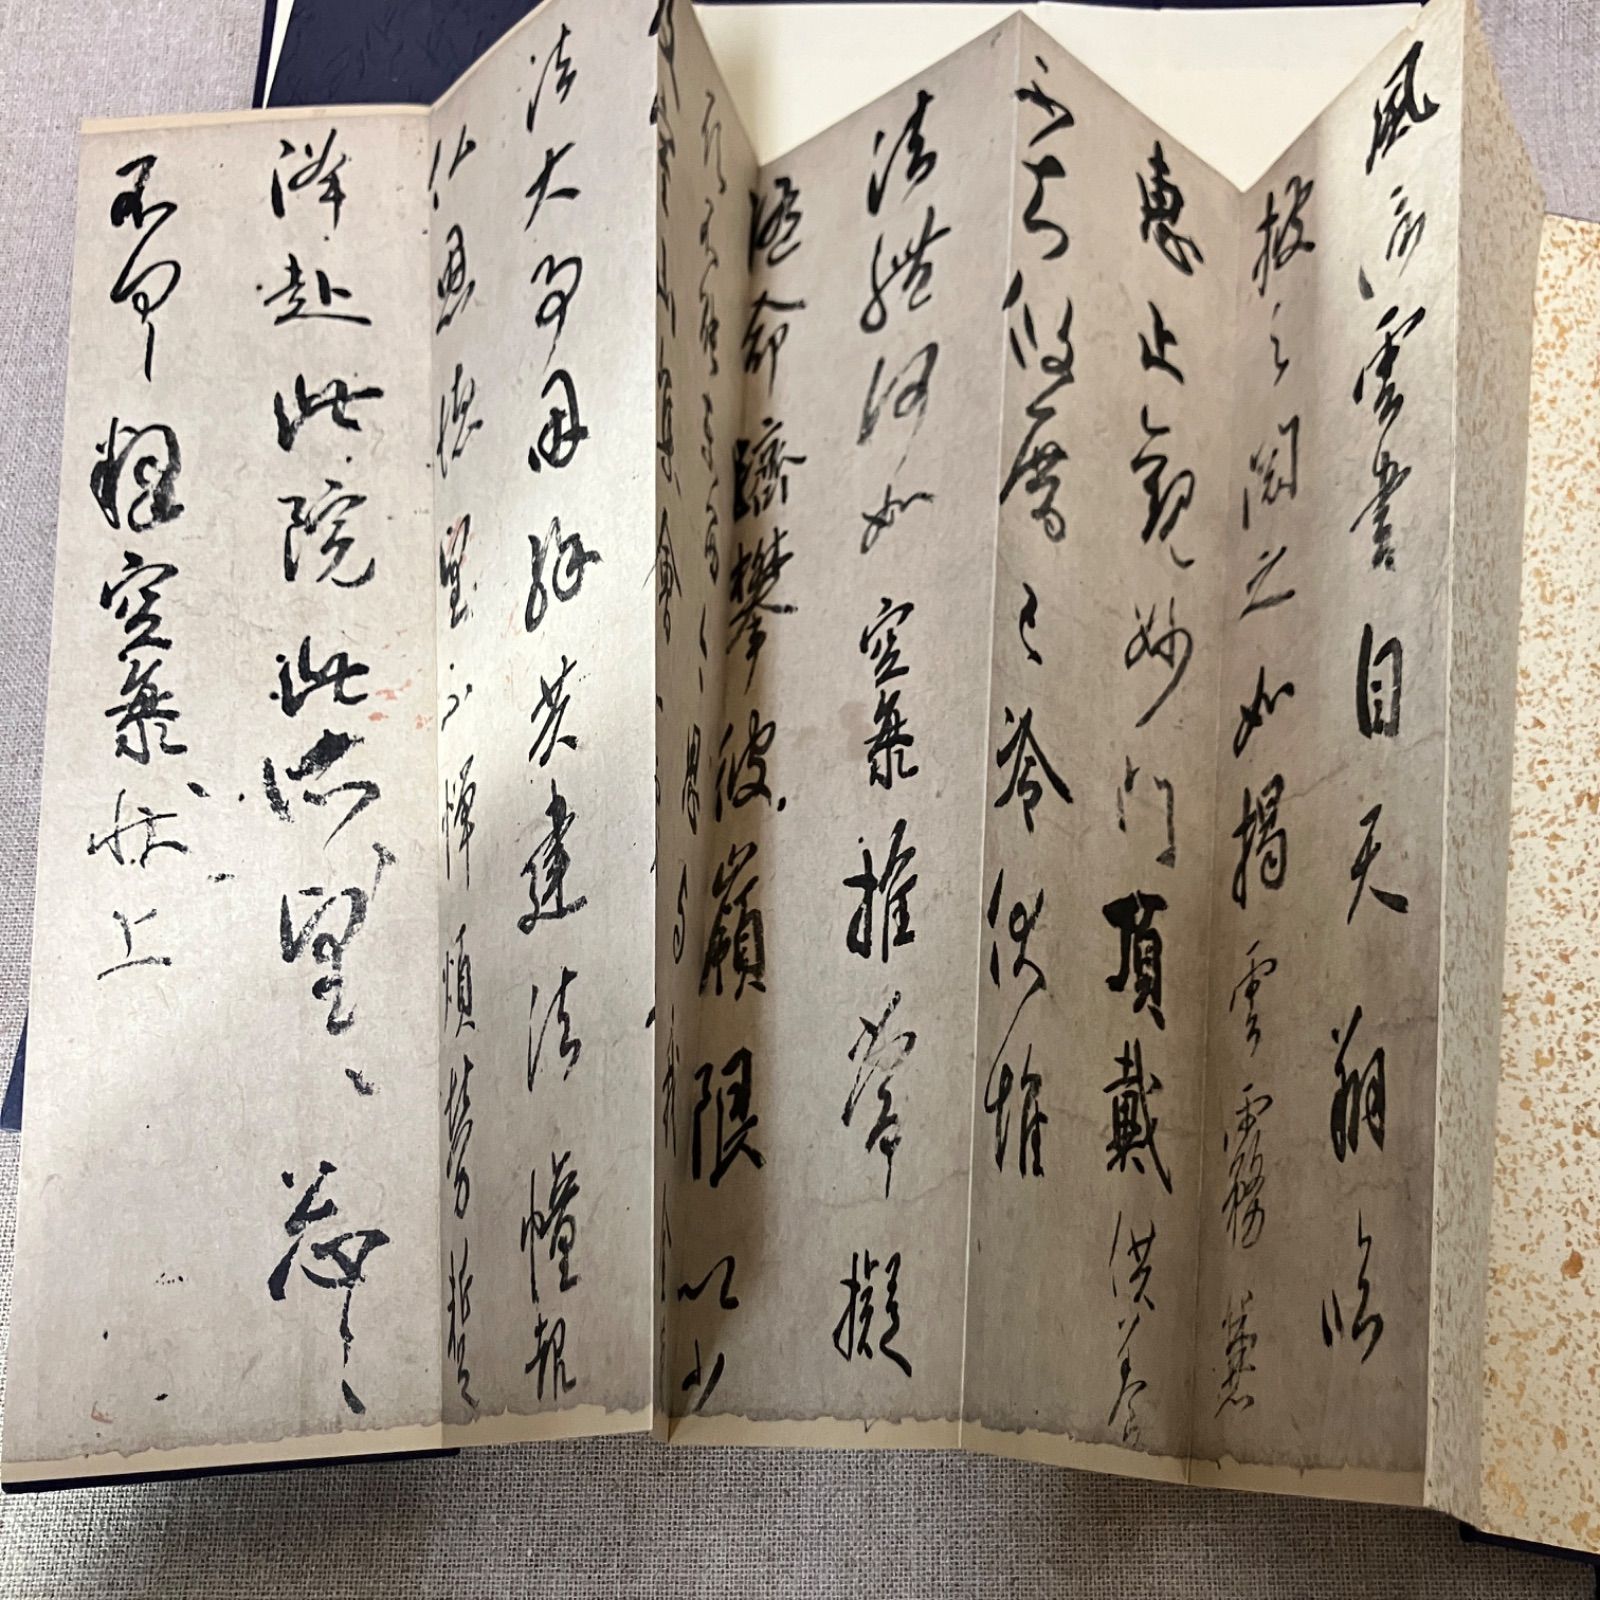 風信雲書自天翔臨
披之閲之如掲雲霧兼
恵止觀妙門頂戴供養
不知攸厝已冷伏惟
法體何如空海推常擬
隨命躋攀彼嶺限以少
思与我
會
法大事因縁共建法幢報
仏恩徳望不憚煩勞蹔
降赴此院此所望々々忩々
不具釋空海状上